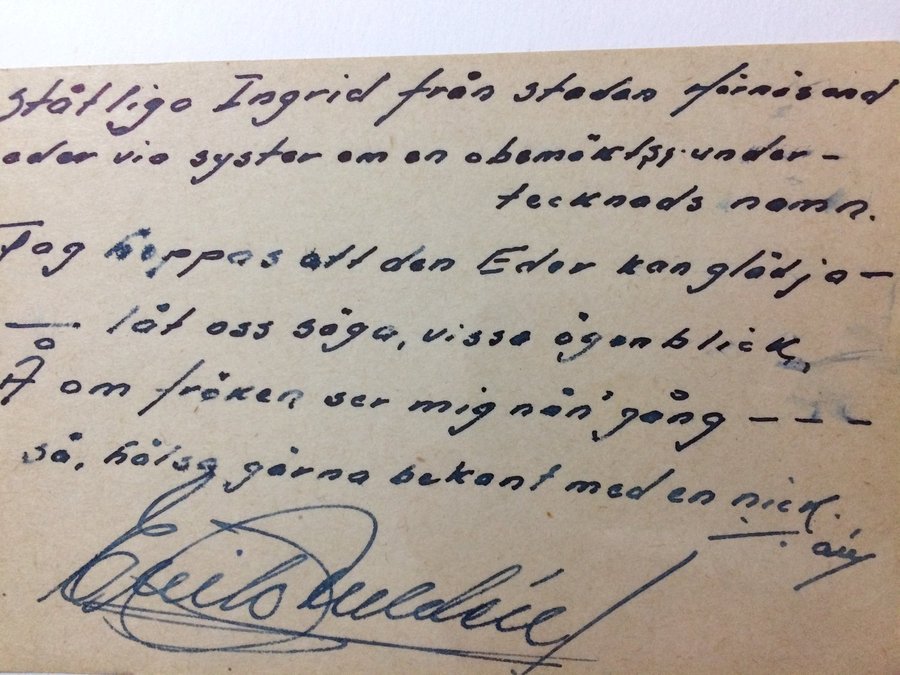 Ståtliga Ingrid från staden Härnösand
eder via syster om en obemäkts under-
tecknads namn.
Jag hoppas att den Eder kan glädja —
— låt oss säga, vissa ögonblick,
Å om fröken ser mig nån' gång — — —
så, hälsa gärna bekant med en nick.